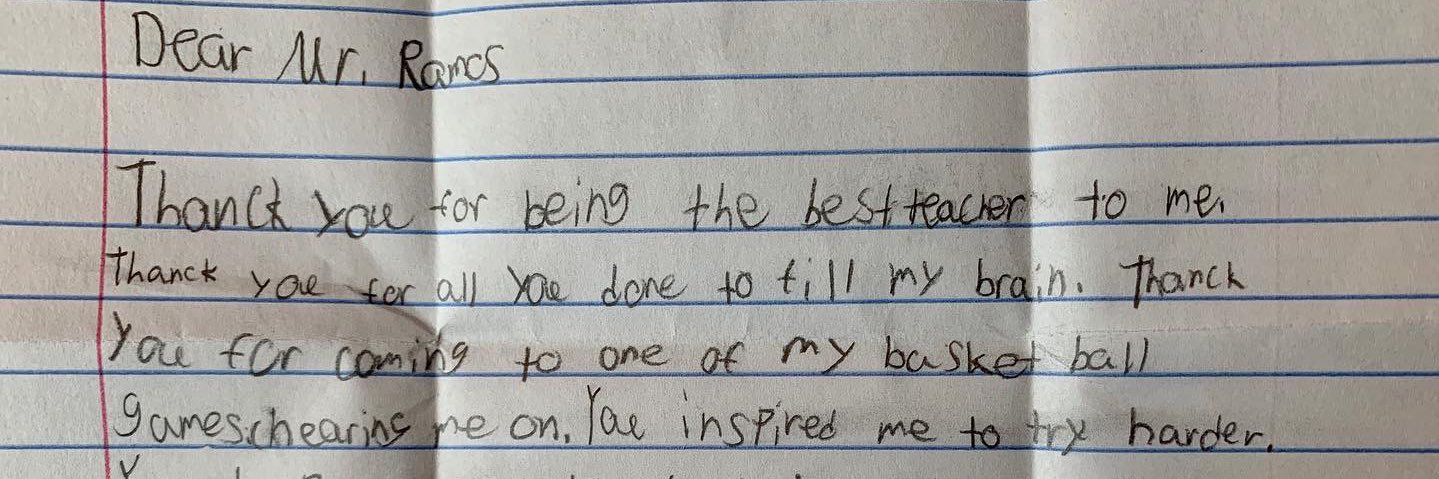 Dear Mr. Ramos
Thanck you for being the best teacher to me.
thanck you for all you done to fill my brain. Thanck
you for coming to one of my basket ball
games,chearing me on. You inspired me to try harder.